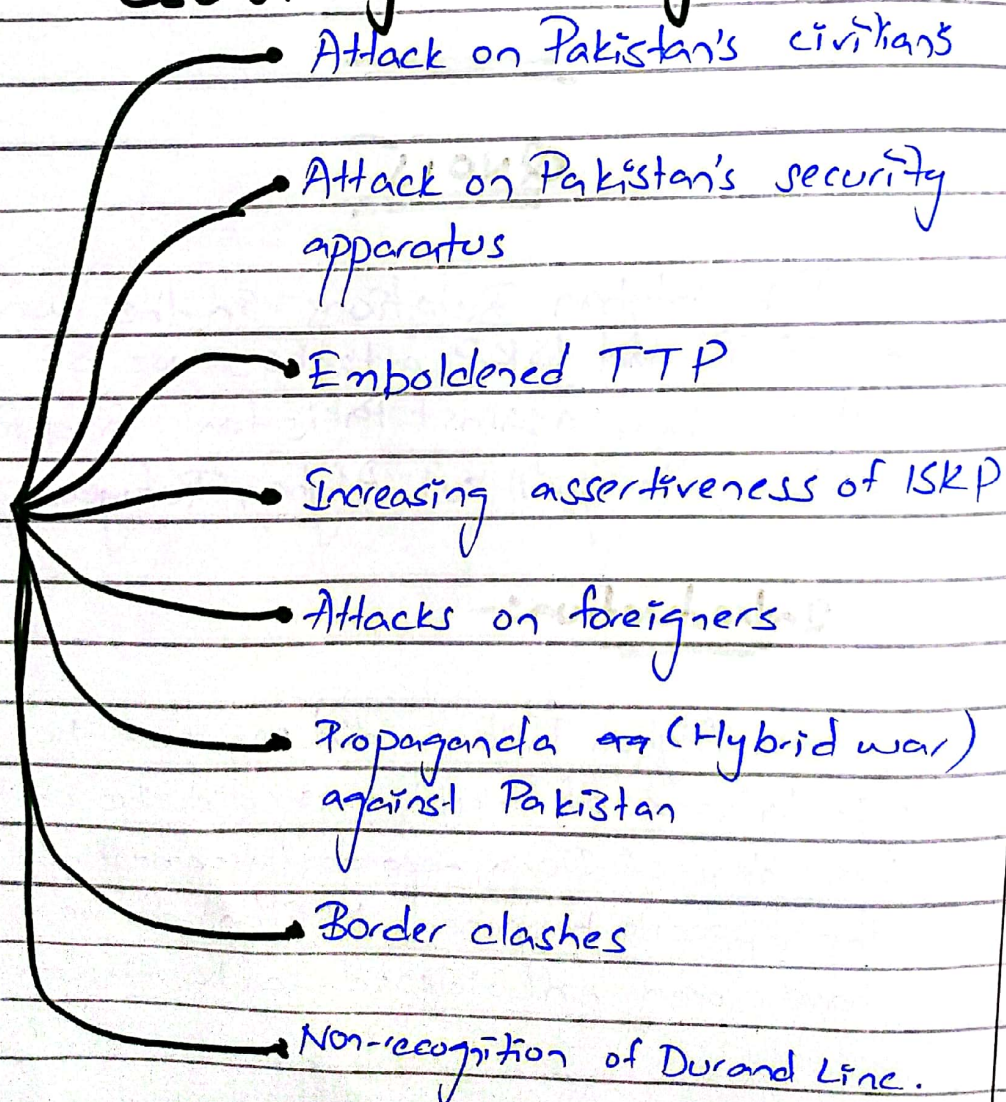 Attack on Pakistan's civilians
Attack on Pakistan's security
apparatus
Emboldened TTP
Increasing assertiveness of ISKP
Attacks on foreigners
Propaganda (Hybrid war)
against Pakistan
Border clashes
Non-recognition of Durand Line.